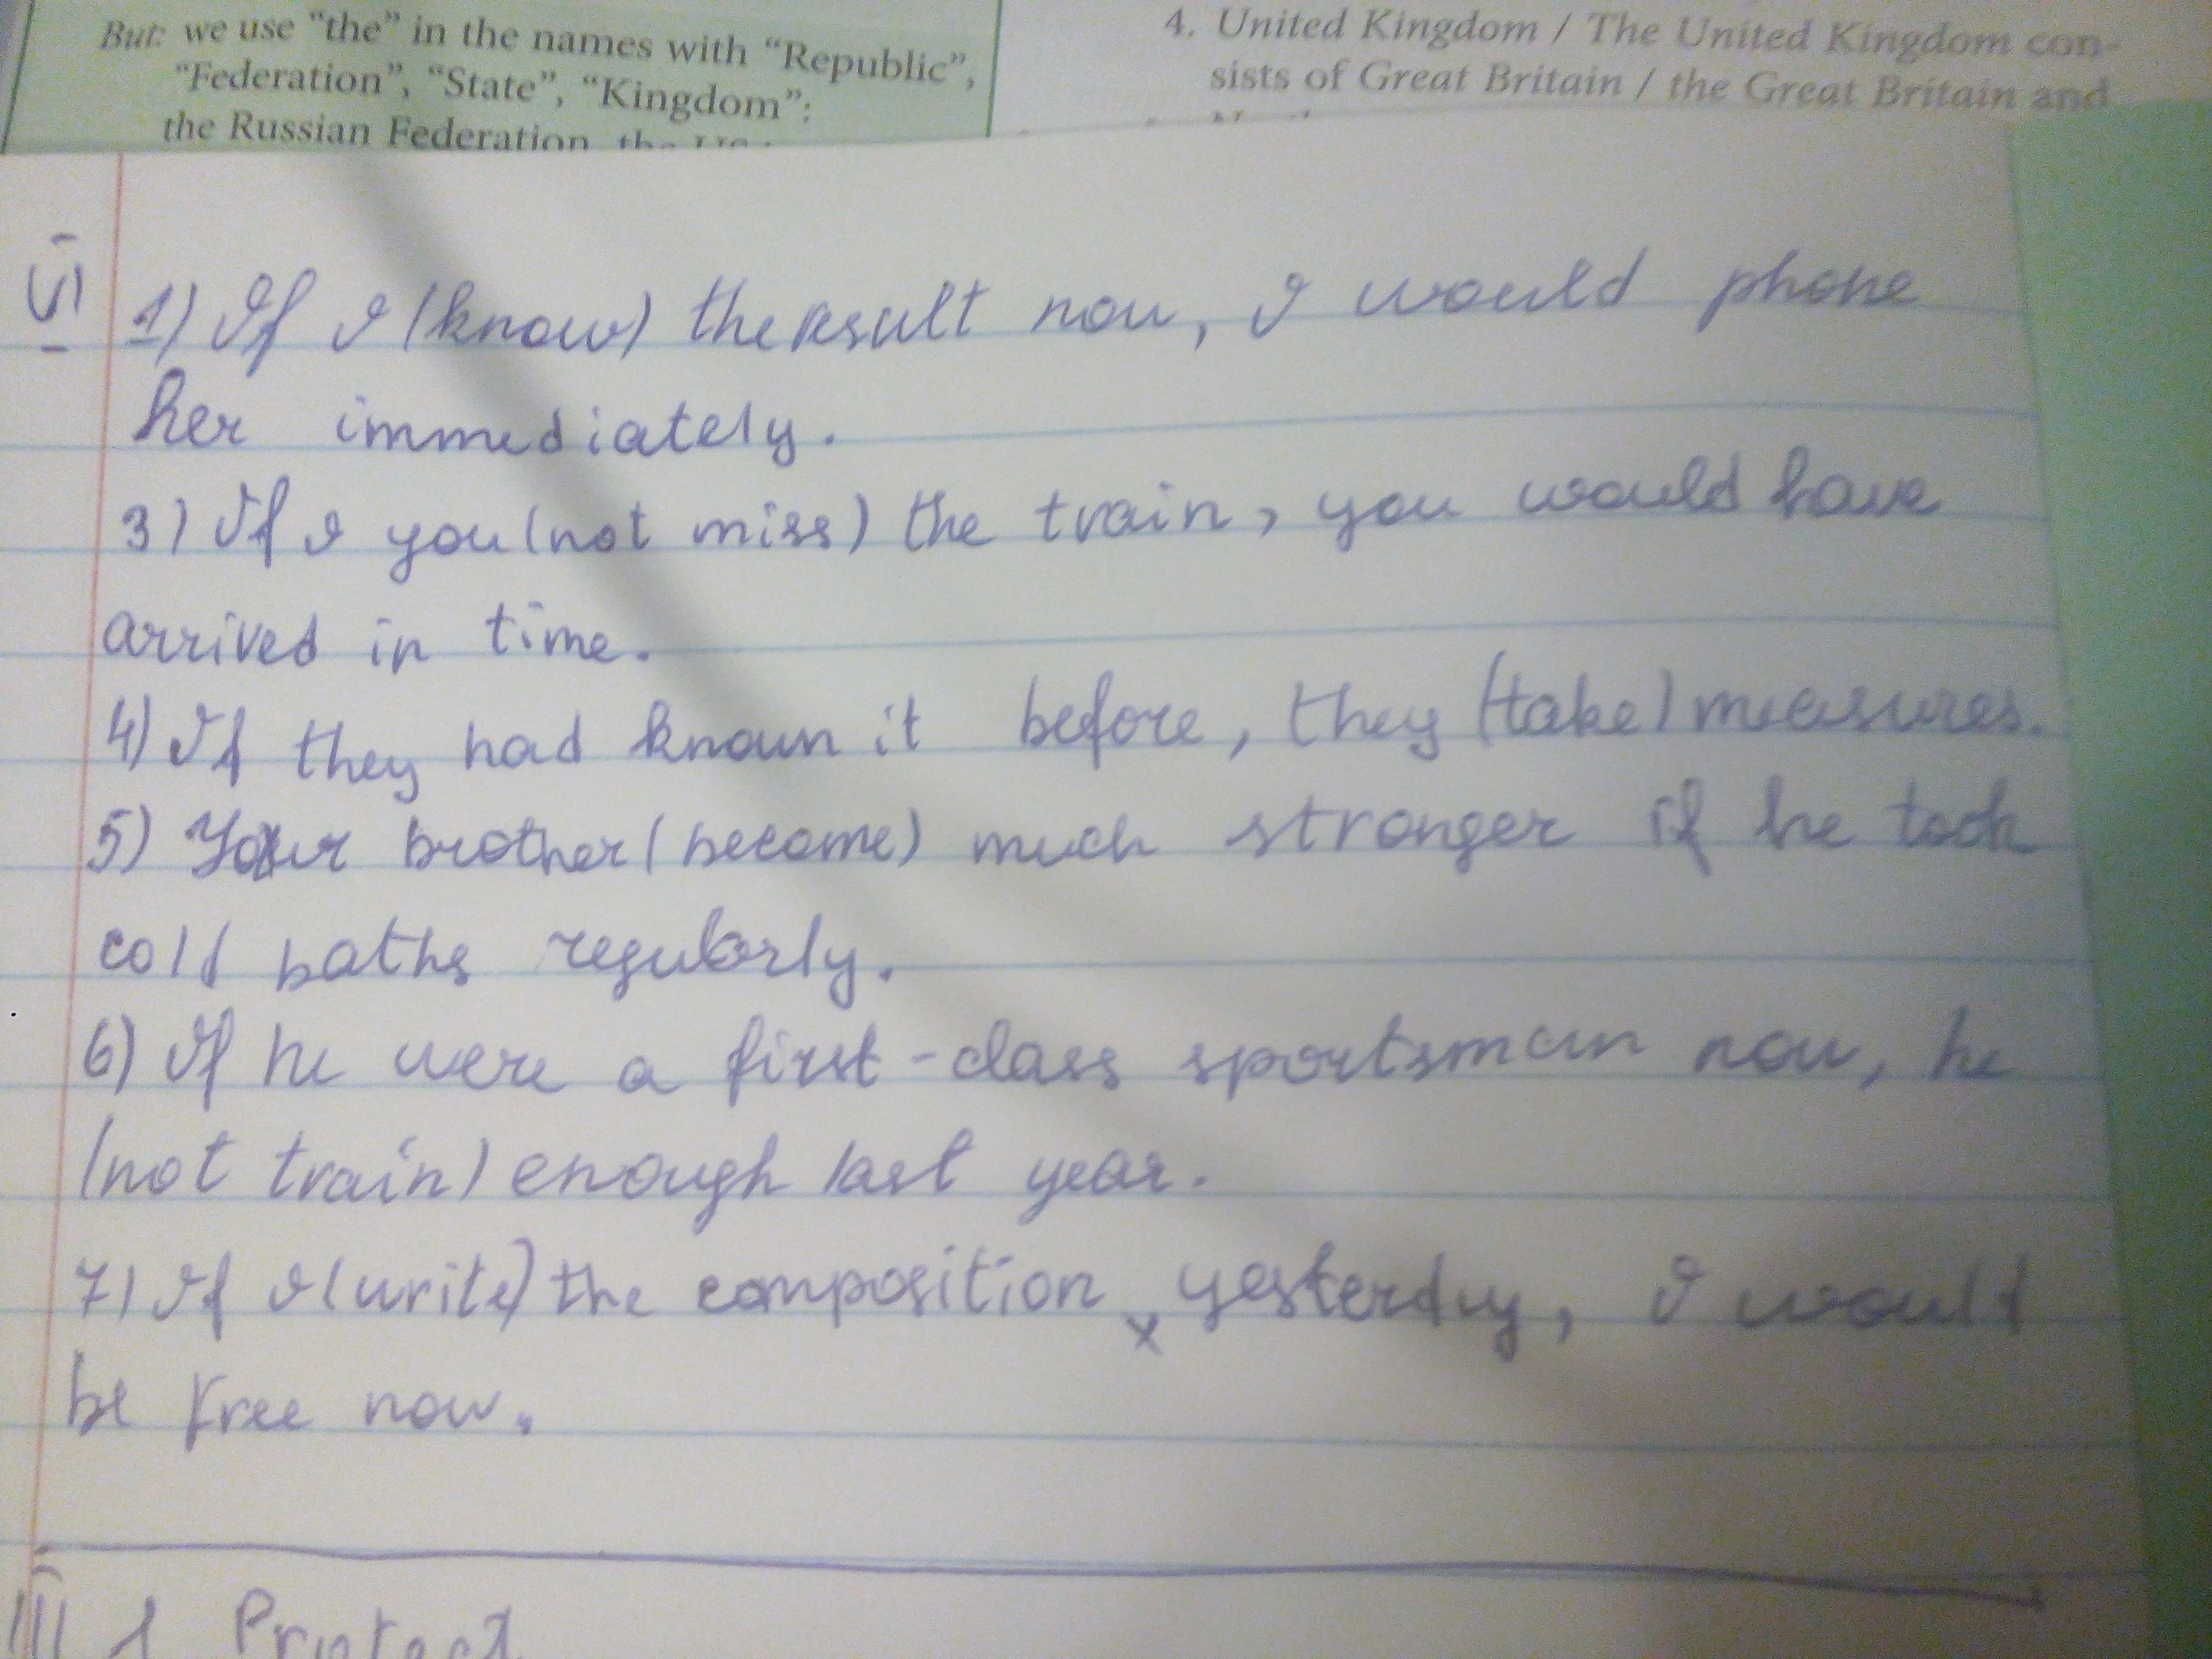 But: we use “the” in the names with “Republic”,
“Federation”, “State”, “Kingdom”:
the Russian Federation, the
4. United Kingdom / The United Kingdom con-
sists of Great Britain / the Great Britain and
VI 1) If I (know) the result now, I would phone
her immediately.
3) If I you (not miss) the train, you would have
arrived in time.
4) If they had known it before, they (take) measures.
5) Your brother (become) much stronger if he took
cold baths regularly.
6) If he were a first-class sportsman now, he
(not train) enough last year.
7) If I (write) the composition x yesterday, I would
be free now.
III 1 Protect